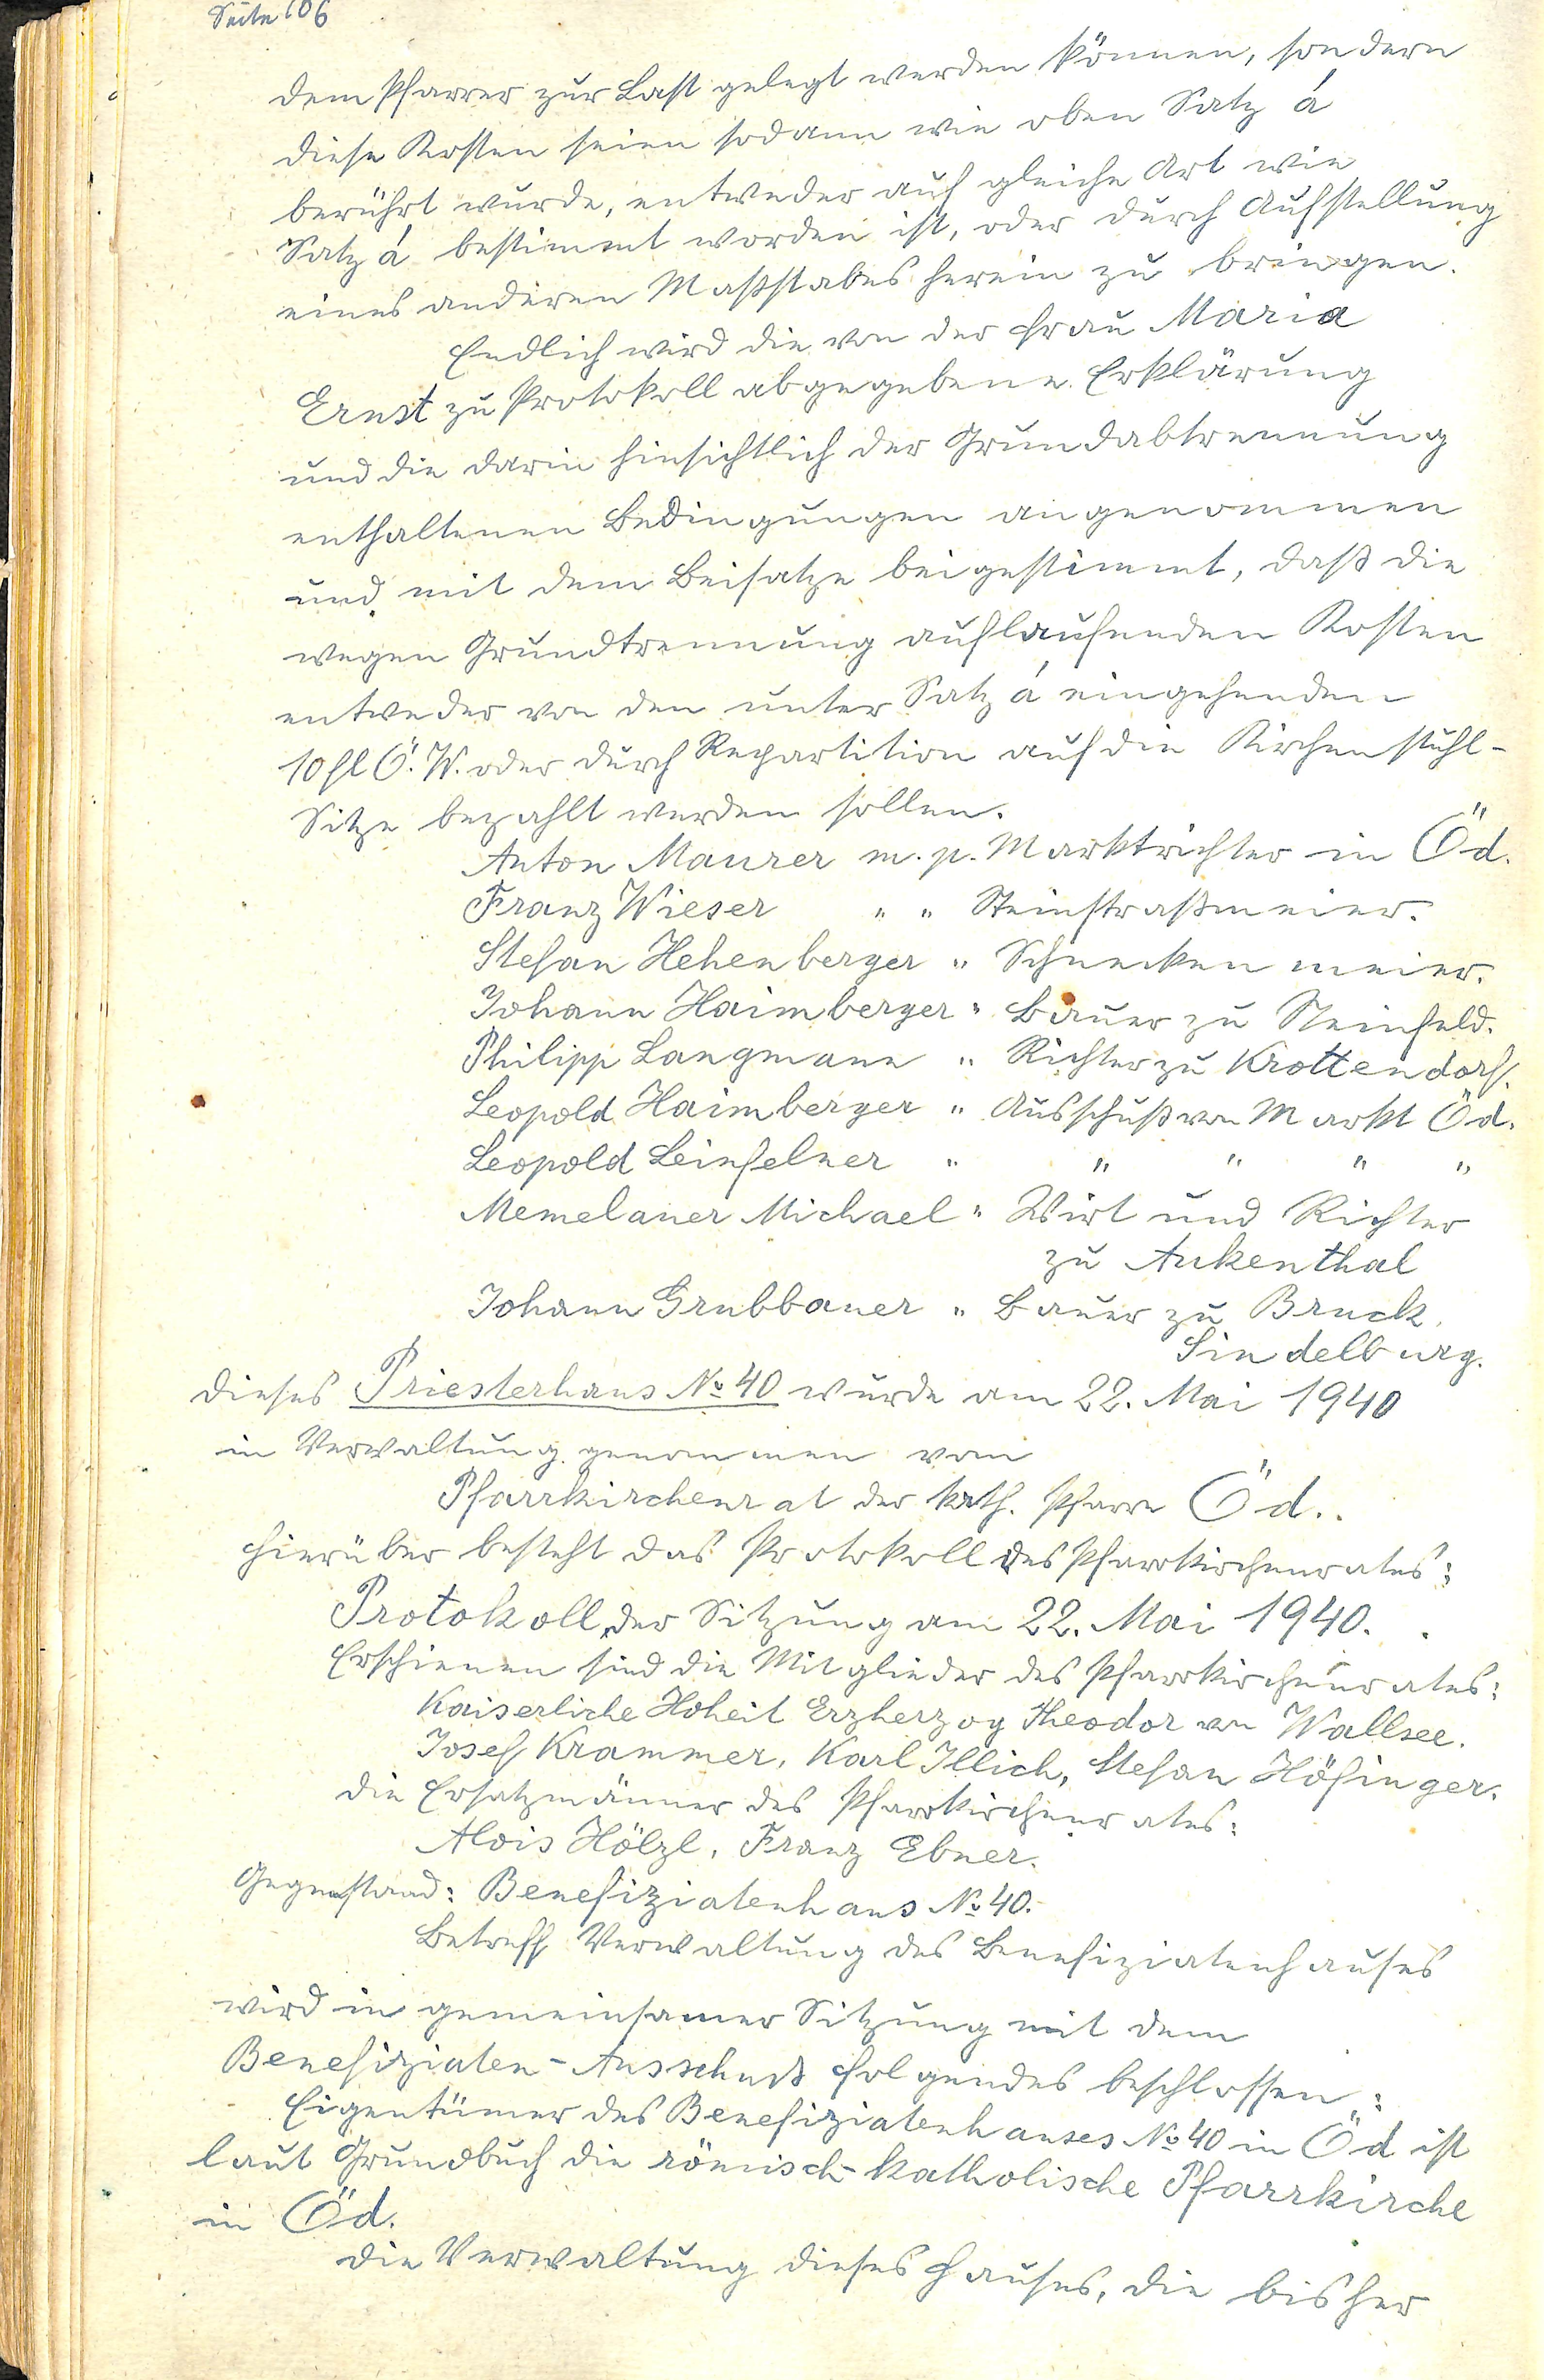 Seite 106
dem Pfarrer zur Last gelegt werden können, sondern
diese Kosten seien sodann wie oben Satz á
berührt wurde, entweder auf gleiche Art wie
Satz á bestimmt worden ist, oder durch Aufstellung
eines anderen Maßstabes herein zu bringen.
Endlich wird die von der Frau Maria
Ernst zu Protokoll abgegebene Erklärung
und die darin hinsichtlich der Grundabtrennung
enthaltenen Bedingungen angenommen
und mit dem Beisatze beigestimmt, daß die
wegen Grundtrennung auflaufenden Kosten
entweder von den unter Satz á eingehenden
10 fl Ö. W. oder durch Repartition auf die Kirchenstuhl-
Sitze bezahlt werden sollen.
Anton Maurer m. p. Marktrichter in Öd.
Franz Wieser " " Steinstraßmeier.
Stefan Hehenberger " Schneckenmeier.
Johann Haimberger " Bauer zu Steinfeld.
Philipp Langmann " Richter zu Krottendorf.
Leopold Haimberger " Ausschuß von Markt Öd.
Leopold Leinfelner " " " " "
Memelauer Michael " Wirt und Richter
zu Aukenthal
Johann Grubbauer " Bauer zu Bruck.
Sindelburg.
Dieses Priesterhaus № 40 wurde am 22. Mai 1940
in Verwaltung genommen vom
Pfarrkirchenrat der kath. Pfarre Öd..
Hierüber besteht das Protokoll des Pfarrkirchenrates:
Protokoll der Sitzung am 22. Mai 1940.
Erschienen sind die Mitglieder des Pfarrkirchenrates:
Kaiserliche Hoheit Erzherzog Theodor von Wallsee.
Josef Krammer, Karl Illich, Stefan Höfinger.
Die Ersatzmänner des Pfarrkirchenrates:
Alois Hölzl, Franz Ebner.
Gegenstand: Benefiziatenhaus № 40.
Betreff Verwaltung des Benefiziatenhauses
wird in gemeinsamer Sitzung mit dem
Benefiziaten-Ausschuß folgendes beschlossen:
Eigentümer des Benefiziatenhauses № 40 in Öd ist
laut Grundbuch die römisch-katholische Pfarrkirche
in Öd.
Die Verwaltung dieses Hauses, die bisher